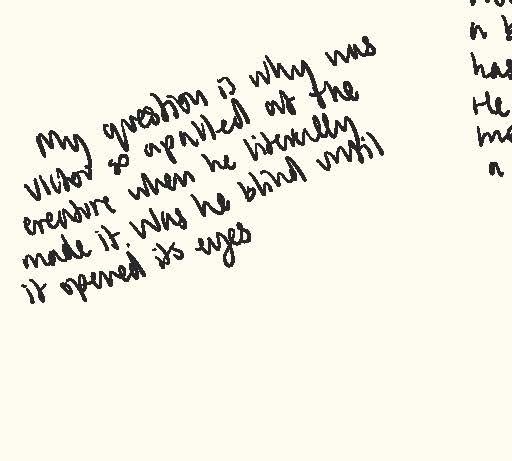 My question is why was
victor so apalled at the
creature when he literally
made it. Was he blind until
it opened its eyes
a b
has
He
a